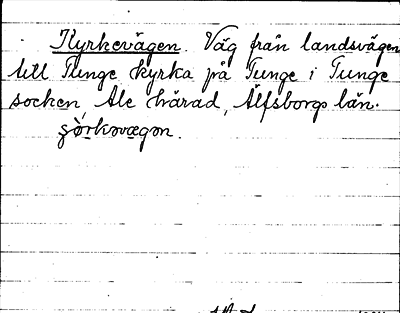 Kyrkevägen. Väg från landsvägen
till Tunge kyrka på Tunge i Tunge
socken, Ale härad, Älfsborgs län.